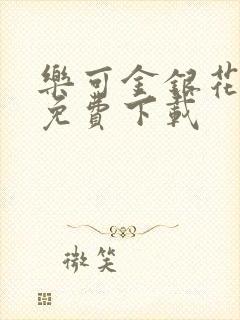 樂可金銀花
免費下載
微笑